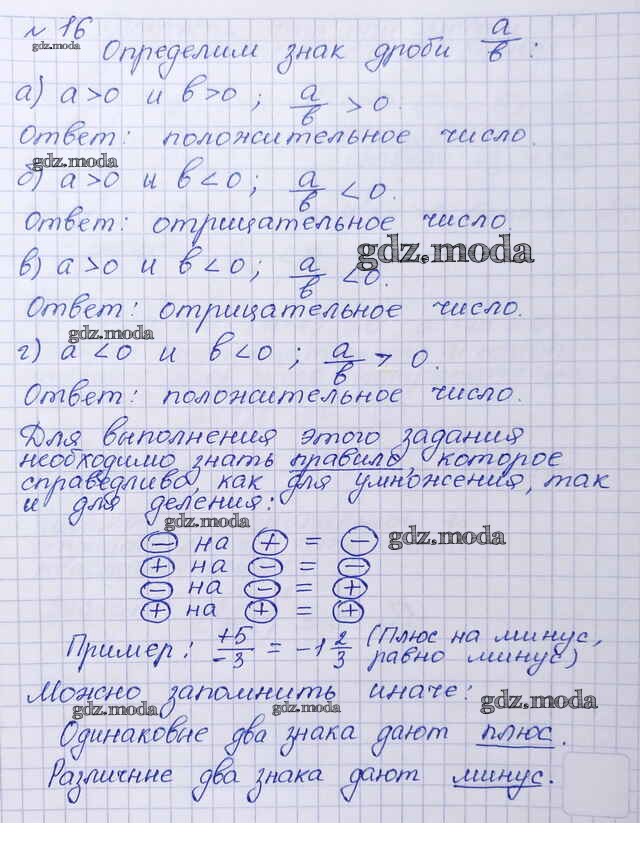 № 16
gdz.moda
Определим знак дроби a/b :
а) a>0 и b>0 ; a/b > 0.
Ответ: положительное число.
gdz.moda
б) a>0 и b<0 ; a/b < 0.
Ответ: отрицательное число.
gdz.moda
в) a>0 и b<0 ; a/b < 0.
Ответ: отрицательное число.
gdz.moda
г) a<0 и b<0 ; a/b > 0.
Ответ: положительное число.
Для выполнения этого задания
необходимо знать правило, которое
справедливо, как для умножения, так
и для деления:
gdz.moda
⊖ на ⊕ = ⊖
gdz.moda
⊕ на ⊖ = ⊖
⊖ на ⊖ = ⊕
⊕ на ⊕ = ⊕
Пример: +5/-3 = -1 2/3 (Плюс на минус,
равно минус)
Можно запомнить иначе:
gdz.moda
gdz.moda
gdz.moda
Одинаковые два знака дают плюс.
Различные два знака дают минус.